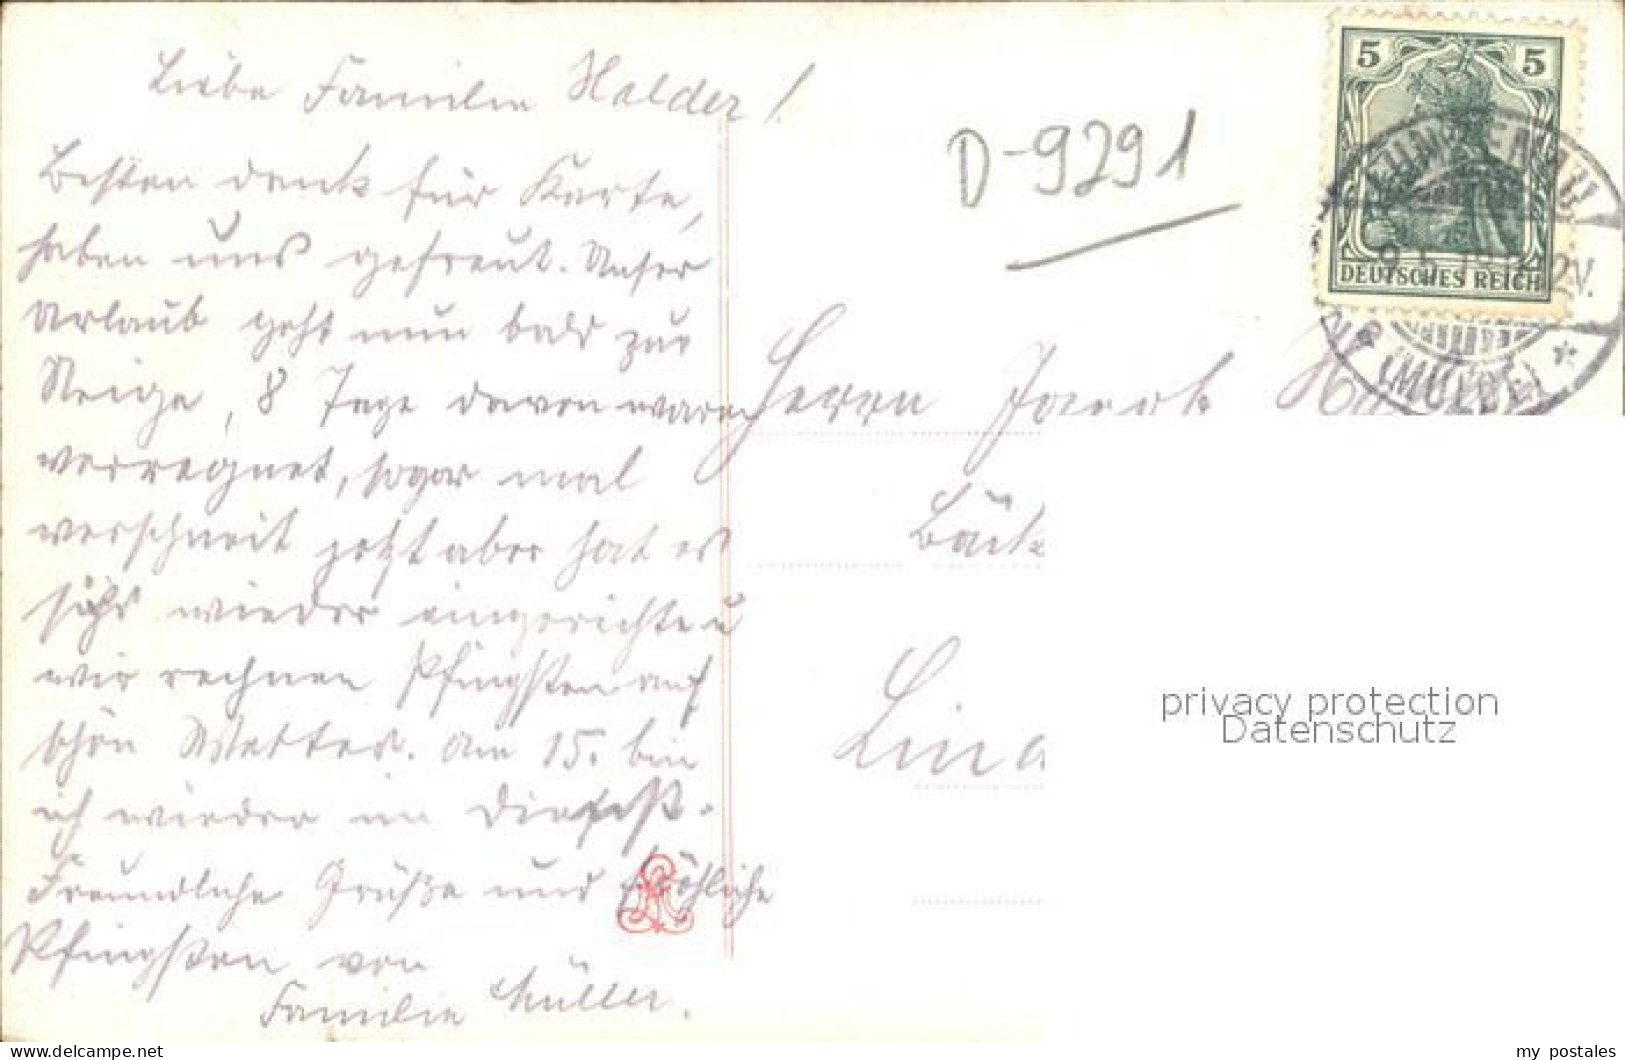 Liebe Familie Halder!
Besten dank für Karte,
haben uns gefreut. Unser
Urlaub geht nun bald zur
Neige, 8 Tage davon waren
verregnet, sogar mal
verschneit jetzt aber hat es
sichs wieder eingerichtet u
wir rechnen Pfingsten auf
schön Wetter. Am 15. bin
ich wieder im Dienst.
Freundliche Grüße und fröhliche
Pfingsten von
Familie Müller.
D-9291
5 5
DEUTSCHES REICH
(MULDE) *
Herrn Jacob
Bäck
Lind
privacy protection
Datenschutz
www.delcampe.net
my_postales